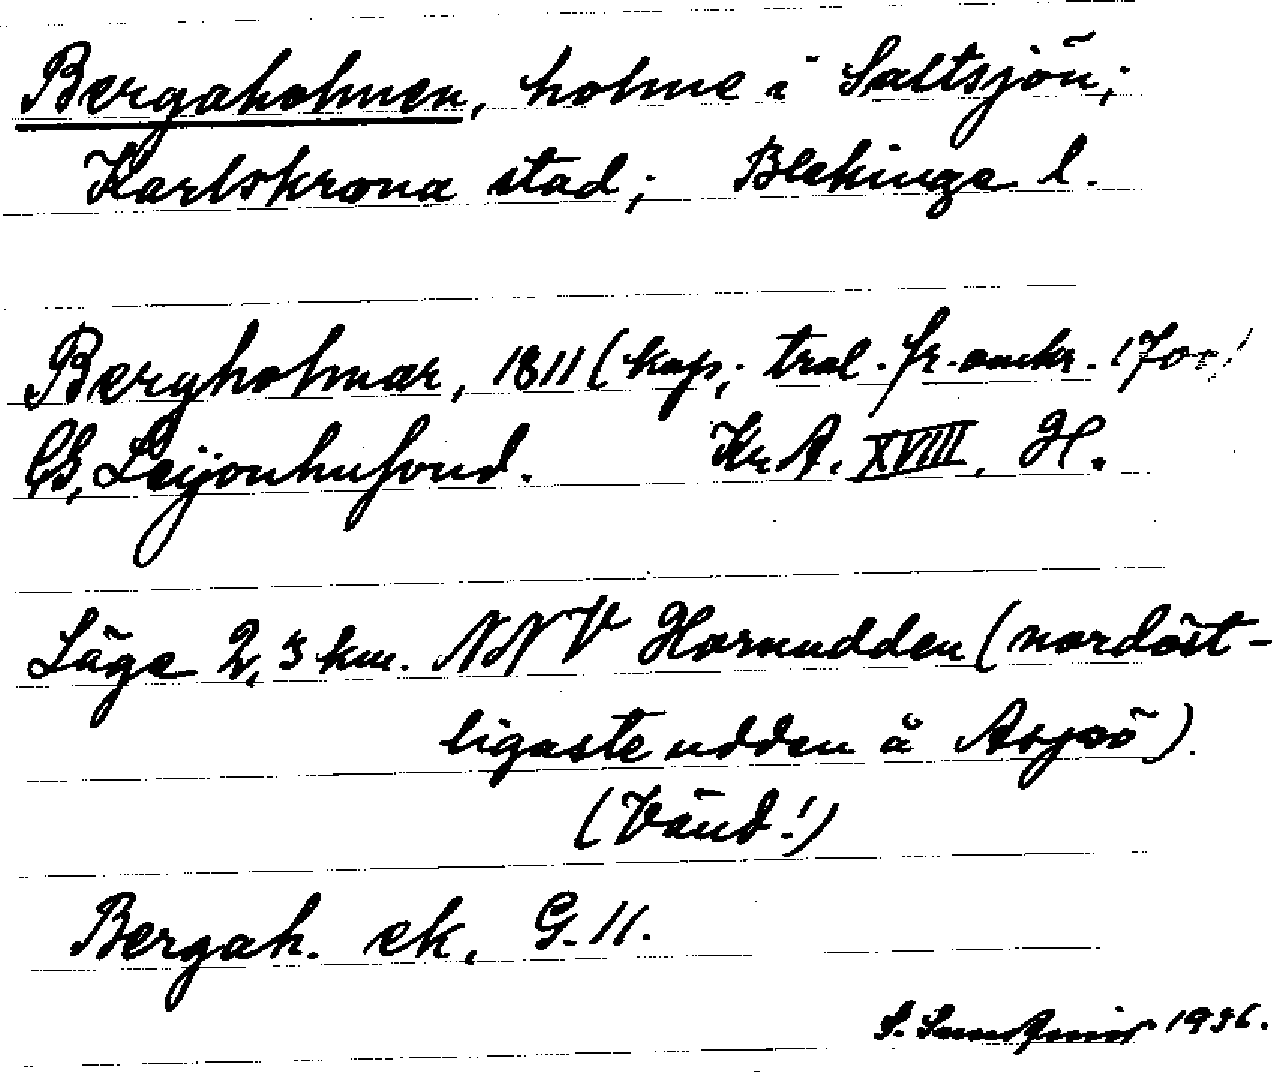 Bergaholmen, holme i Saltsjön;
Karlskrona stad; Blekinge l.
Bergholmar, 1811 (kop; trol. fr. omkr. 1700)
CG, Leijonhufvud. Kr. A. XVIII, H.
Läge 2,3 km. NNV Hornudden (nordöst-
ligaste udden å Aspö).
(Vänd!)
Bergah. ek. G. 11.
S. 1936.